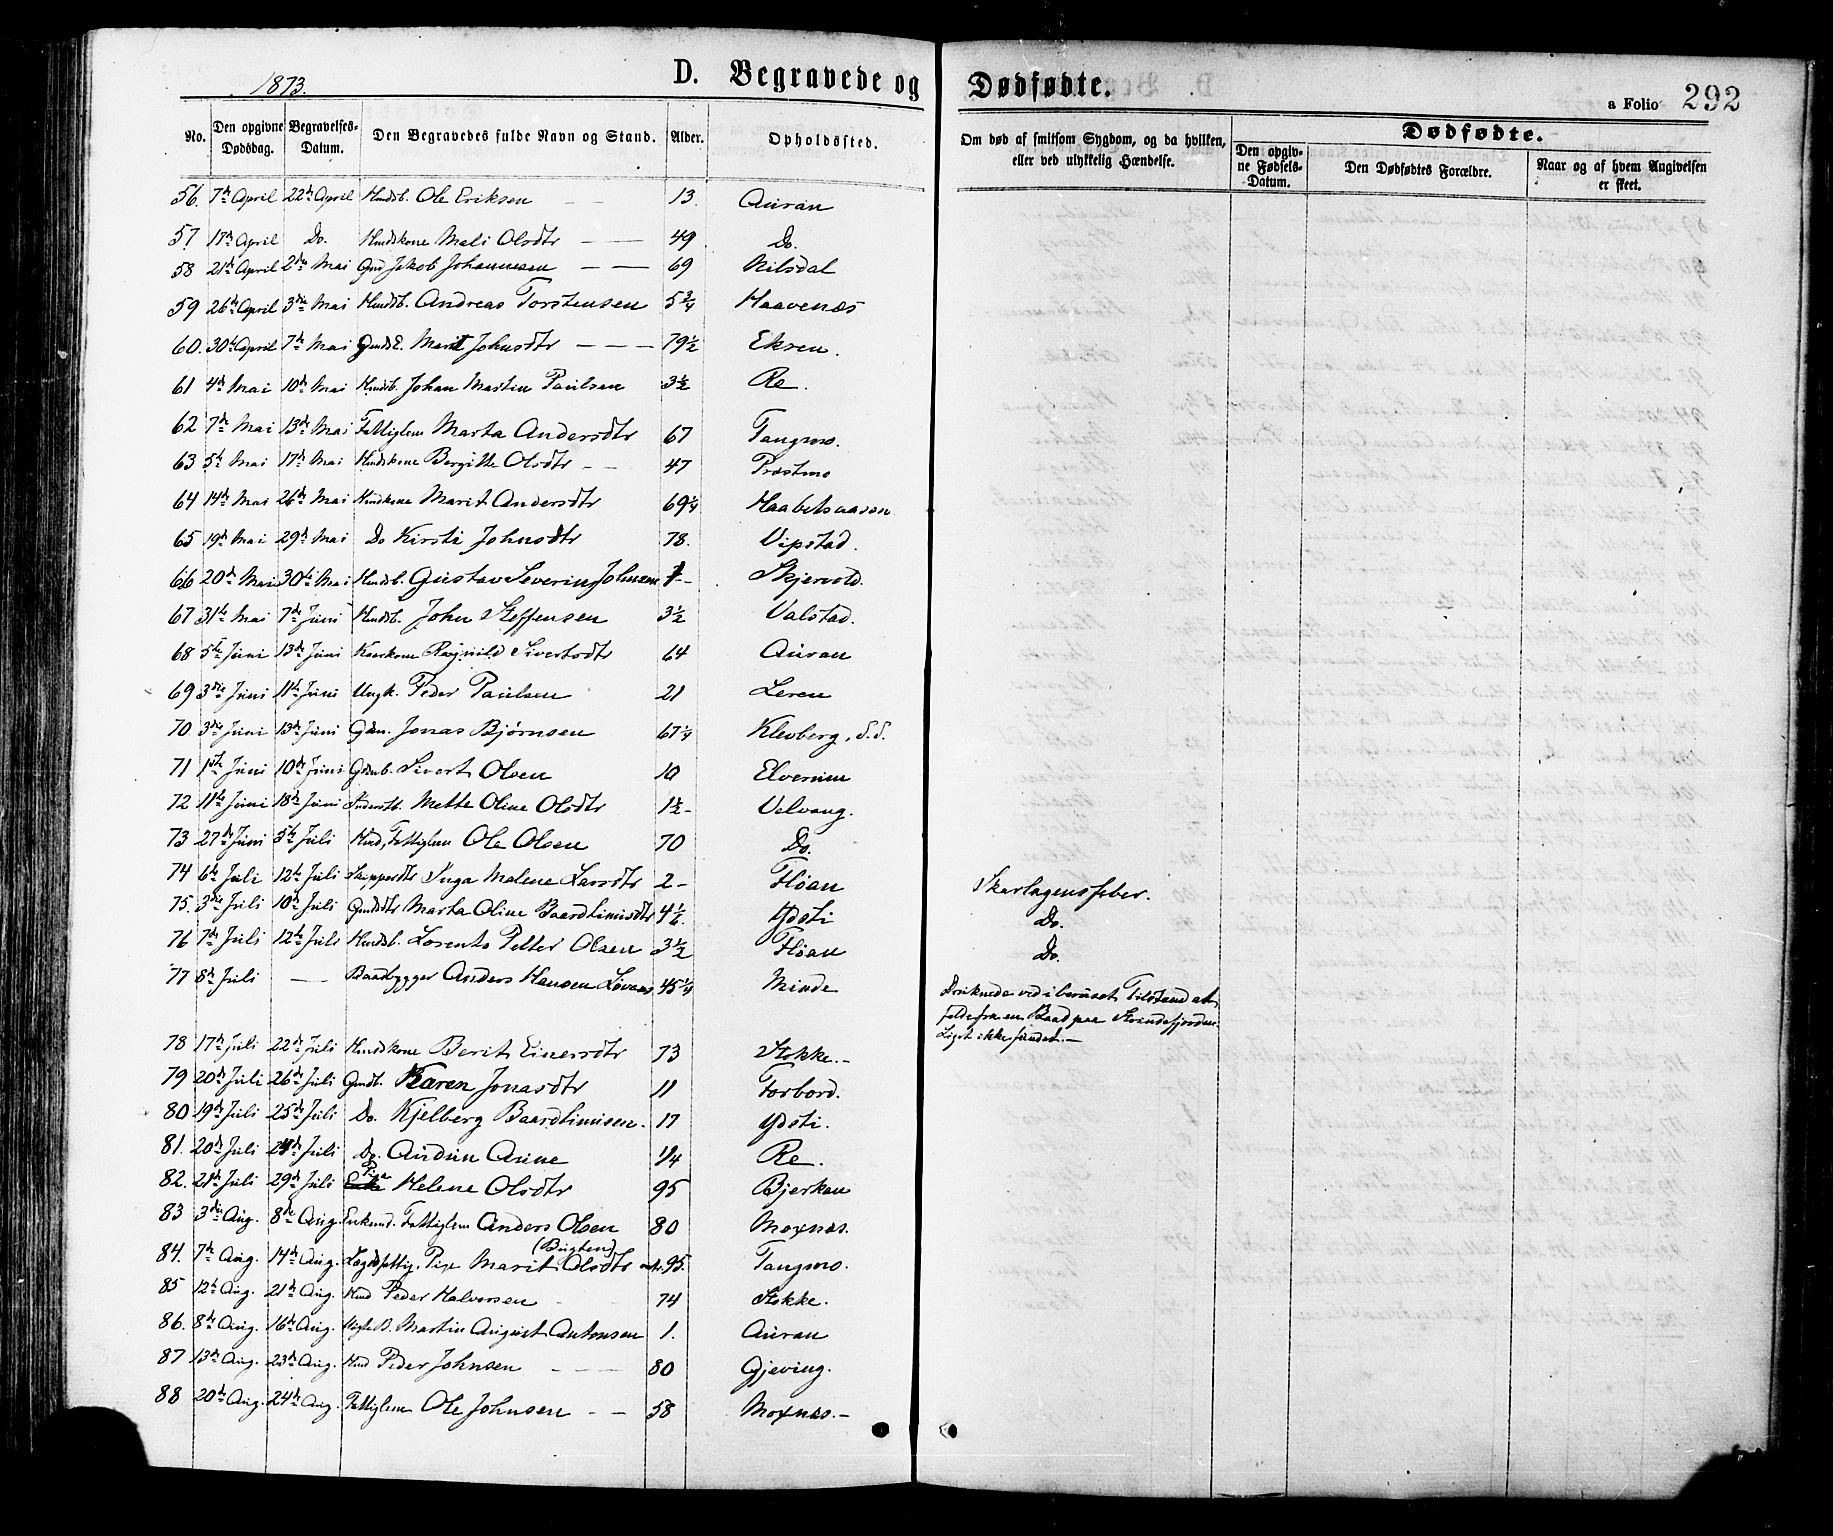 1873.
D. Begravede og Dødfødte.
a Folio 292
No. Den opgivne Dødsdag. Begravelses-Datum. Den Begravedes fulde Navn og Stand. Alder. Opholdssted. Om død af smitsom Sygdom, og da hvilken, eller ved ulykkelig Hændelse. Dødfødte.
Den opgivne Fødsels-Datum. Den Dødfødtes Forældre. Naar og af hvem Angivelsen er skeet.
56. 7de April 22de April Huusb. Ole Eriksen 13. Auran
57 17de April Do. Huuskone Mali Olsdtr — — 49 Do.
58 21de April 2den Mai Gmd Jakob Johannesen — — 69 Nilsdal
59 26de April 3die Mai Huusb. Andreas Torstensen 5 3/4 Haavenæs
60. 30te April 7de Mai Marit Johnsdtr — — — 79 1/2 Ekren.
61 4de Mai 10de Mai Huusb. Johan Martin Paulsen 3 1/2 Re.
62 7de Mai 13de Mai Fattiglem Marta Andersdtr 67 Tangmo.
63 5te Mai 17de Mai Huuskone Bergitte Olsdtr — — 47 Præstmo
64 14de Mai 26de Mai Huuskone Marit Andersdtr 69 1/4 Haabetsaasen
65 19de Mai 29de Mai Do Kirsti Johnsdtr 78. Vipstad.
66 20de Mai 30te Mai Huusb. Gustav Severin Johnsen 1 — Skjervold.
67 31te Mai 7de Juni Huusb. John Steffensen 3 1/2 Valstad.
68 5te Juni 13de Juni Kaarkone Ragnild Sivertsdtr 64 Auran
69 3die Juni 11te Juni Ungk. Peder Paulsen 21 Leren
70 3die Juni 13de Juni Gdm. Jonas Bjørnsen 67 1/4 Klevberg, S. S.
71 1ste Juni 10de Juni Gdmb. Sivert Olsen 10 Elverum
72 11te Juni 18de Juni Mette Oline Olsdtr 1 1/2 — Velvang.
73 27de Juni 5te Juli Huusd, Fattiglem Ole Olsen 70 Do.
74 6te Juli 12te Juli Skipperdtr Inga Malene Larsdtr 2 — Fløan Skarlagensfeber.
75. 3die Juli 10de Juli Gmdsdtr Marta Oline Baardtinusdtr 4 1/2. Ydsti Do.
76 7de Juli 12te Juli Huusb. Lorents Petter Olsen 3 1/2 Fløan Do.
77 8de Juli — Baadbygger Anders Hansen 45 1/4 Minde Druknede ved i beruset Tilstand at
falde fra en Baad paa Strindefjorden.
Liget ikke fundet. —
78 17de Juli 22de Juli Huuskone Berit Einersdtr 73 Stokke. —
79 20de Juli 26de Juli Gmdb. Karen Jonasdtr 11 Forbord.
80 19de Juli 25de Juli Do. Kjelberg Baardtinusen. 17 Ydsti.
81. 20de Juli 24de Juli Do. Audun Arine 1/4 Re.
82. 21de Juli 29de Juli Pige Helene Olsdtr 95 Bjerkan
83 3die Aug. 8de Aug. Enkemd. Fattiglem Anders Olsen 80 Moxnæs.
84. 7de Aug. 14de Aug. Lægdsfattig. Pige Marit Olsdtr (Bugten) 95. Tangmo.
85 12te Aug. 21de Aug. Huusd Peder Halvorsen 74 Stokke.
86. 8de Aug. 16de Aug. Martin August Antonsen 1. Auran
87 13de Aug. 23de Aug. Huusd Peder Johnsen — — — 80 Gjeving.
88 20de Aug. 24de Aug. Fattiglem Ole Johnsen — — 58 Moxnæs. —